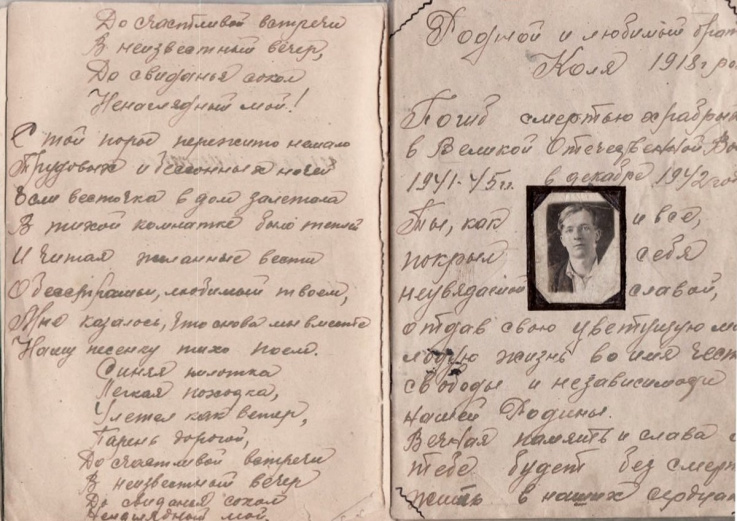 До счастливой встречи
В неизвестный вечер,
До свиданья сокол
Ненаглядный мой!
С той порой пережито немало
Трудовых и бессонных ночей
Если весточка в дом залетала
В тихой комнатке было теплей
И читая желанные вести
О бесстрашьи, любимый твоем,
Мне казалось, что снова мы вместе
Нашу песенку тихо поем.
Синяя пилотка
Легкая походка,
Улетел как ветер,
Парень дорогой,
До счастливой встречи
В неизвестный вечер
До свиданья сокол
Ненаглядный мой.
Родной и любимый брат
Коля 1918 г ро
Погиб смертью храбры
в Великой Отечественной Во
1941-45 гг. в декабре 1942 го
Ты, как и все,
покрыл себя
неувядаемой славой,
отдав свою цветущую мо
лодую жизнь во имя чест
свободы и независимости
нашей Родины.
Вечная память и слава о
тебе будет без смерт
жить в наших сердцах